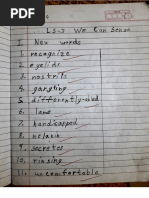 LS-3 We Can Sense
I. New words
1. recognize
2. eyelids
3. nostrils
4. gargling
5. differently-abled
6. lame
7. handicapped
8. melanin
9. secretes
10. rinsing
11. uncomfortable